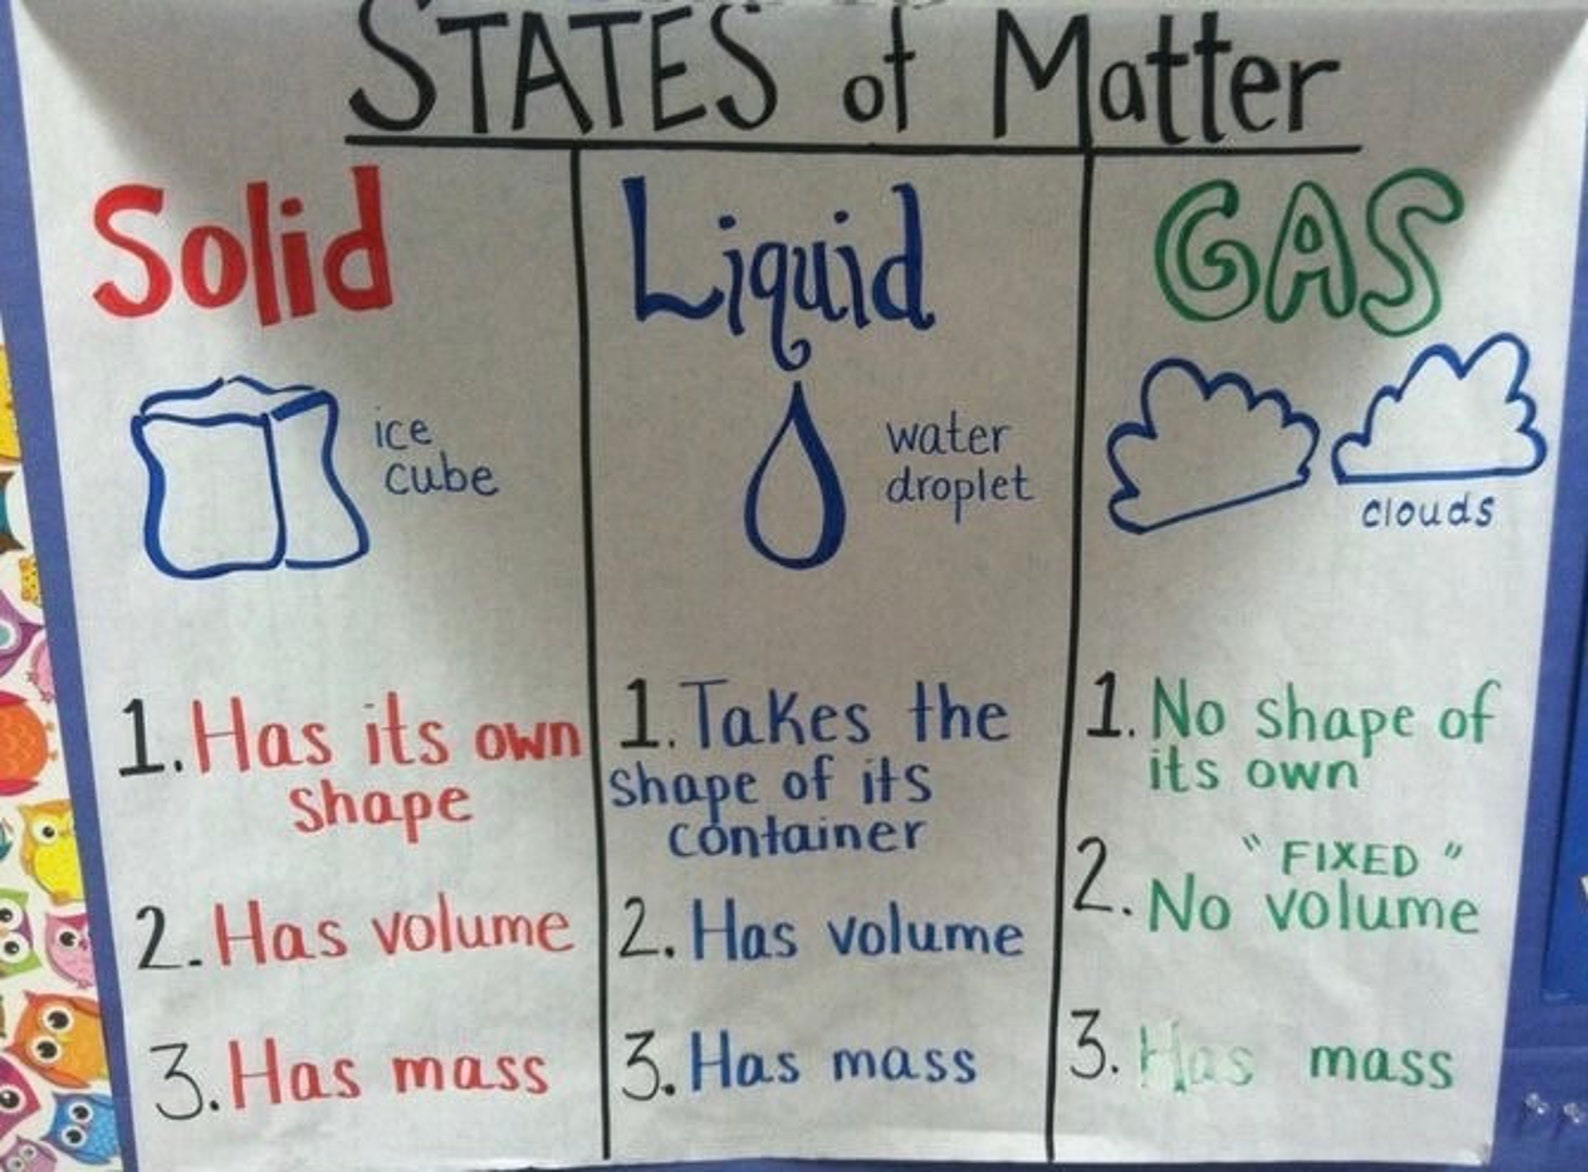 STATES of Matter
Solid
ice
cube
1. Has its own
shape
2. Has volume
3. Has mass
Liquid
water
droplet
1. Takes the
shape of its
container
2. Has volume
3. Has mass
GAS
clouds
1. No shape of
its own
" FIXED "
2. No volume
3. Has mass